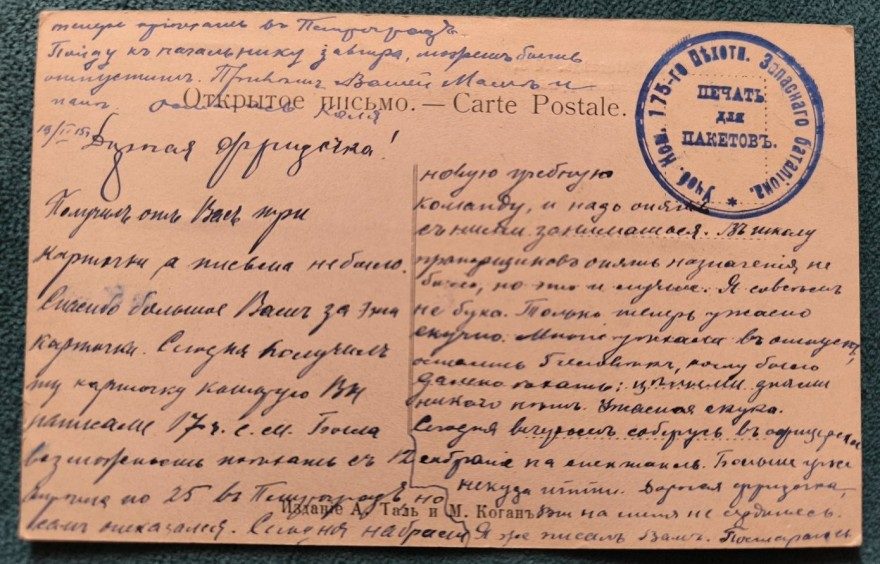 теперь приехать в Петроградъ.
Пойду къ начальнику завтра, можетъ быть
отпуститъ. Привѣтъ Вашей Мамѣ и
папѣ. Коля
Открытое письмо. — Carte Postale.
Учеб. Ком. 175-го Пѣхотн. Запаснаго баталіона.
ПЕЧАТЬ
для
ПАКЕТОВЪ.
19/II 15
Дорогая Фридочка!
Получилъ отъ Васъ три
карточки а письма не было.
Спасибо большое Вамъ за эти
карточки. Сегодня получилъ
ту карточку которую Вы
написали 17 ч. с. м. Была
возможность поѣхать съ 12
по 25 въ Петроградъ, но
самъ отказался. Сегодня набрали
новую учебную
команду, и надо опять
съ ними заниматься. Въ школу
прапорщиковъ опять назначенія не
было, но это и лучше. Я совсѣмъ
не бука. Только теперь ужасно
скучно. Многіе уѣхали въ отпускъ,
остались 5 человѣкъ, кому было
далеко ѣхать; цѣлыми днями
никого нѣтъ. Ужасная скука.
Сегодня вечеромъ соберусь въ офицерское
собраніе на спектакль. Больше уже
некуда итти. Дорогая Фридочка,
Вы на меня не сердитесь.
Я же писалъ Вамъ. Постараюсь
Изданіе А. Тазъ и М. Коганъ